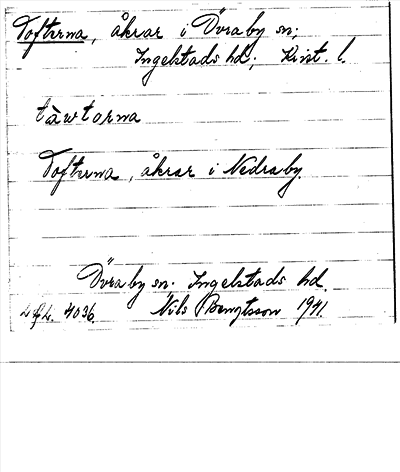 Tofterna, åkrar i Övraby sn;
Ingelstads hd; Krist. l.
tàwtorna
Tofterna, åkrar i Nedraby.
Övraby sn. Ingelstads hd.
4036. Nils Bengtsson 1941.